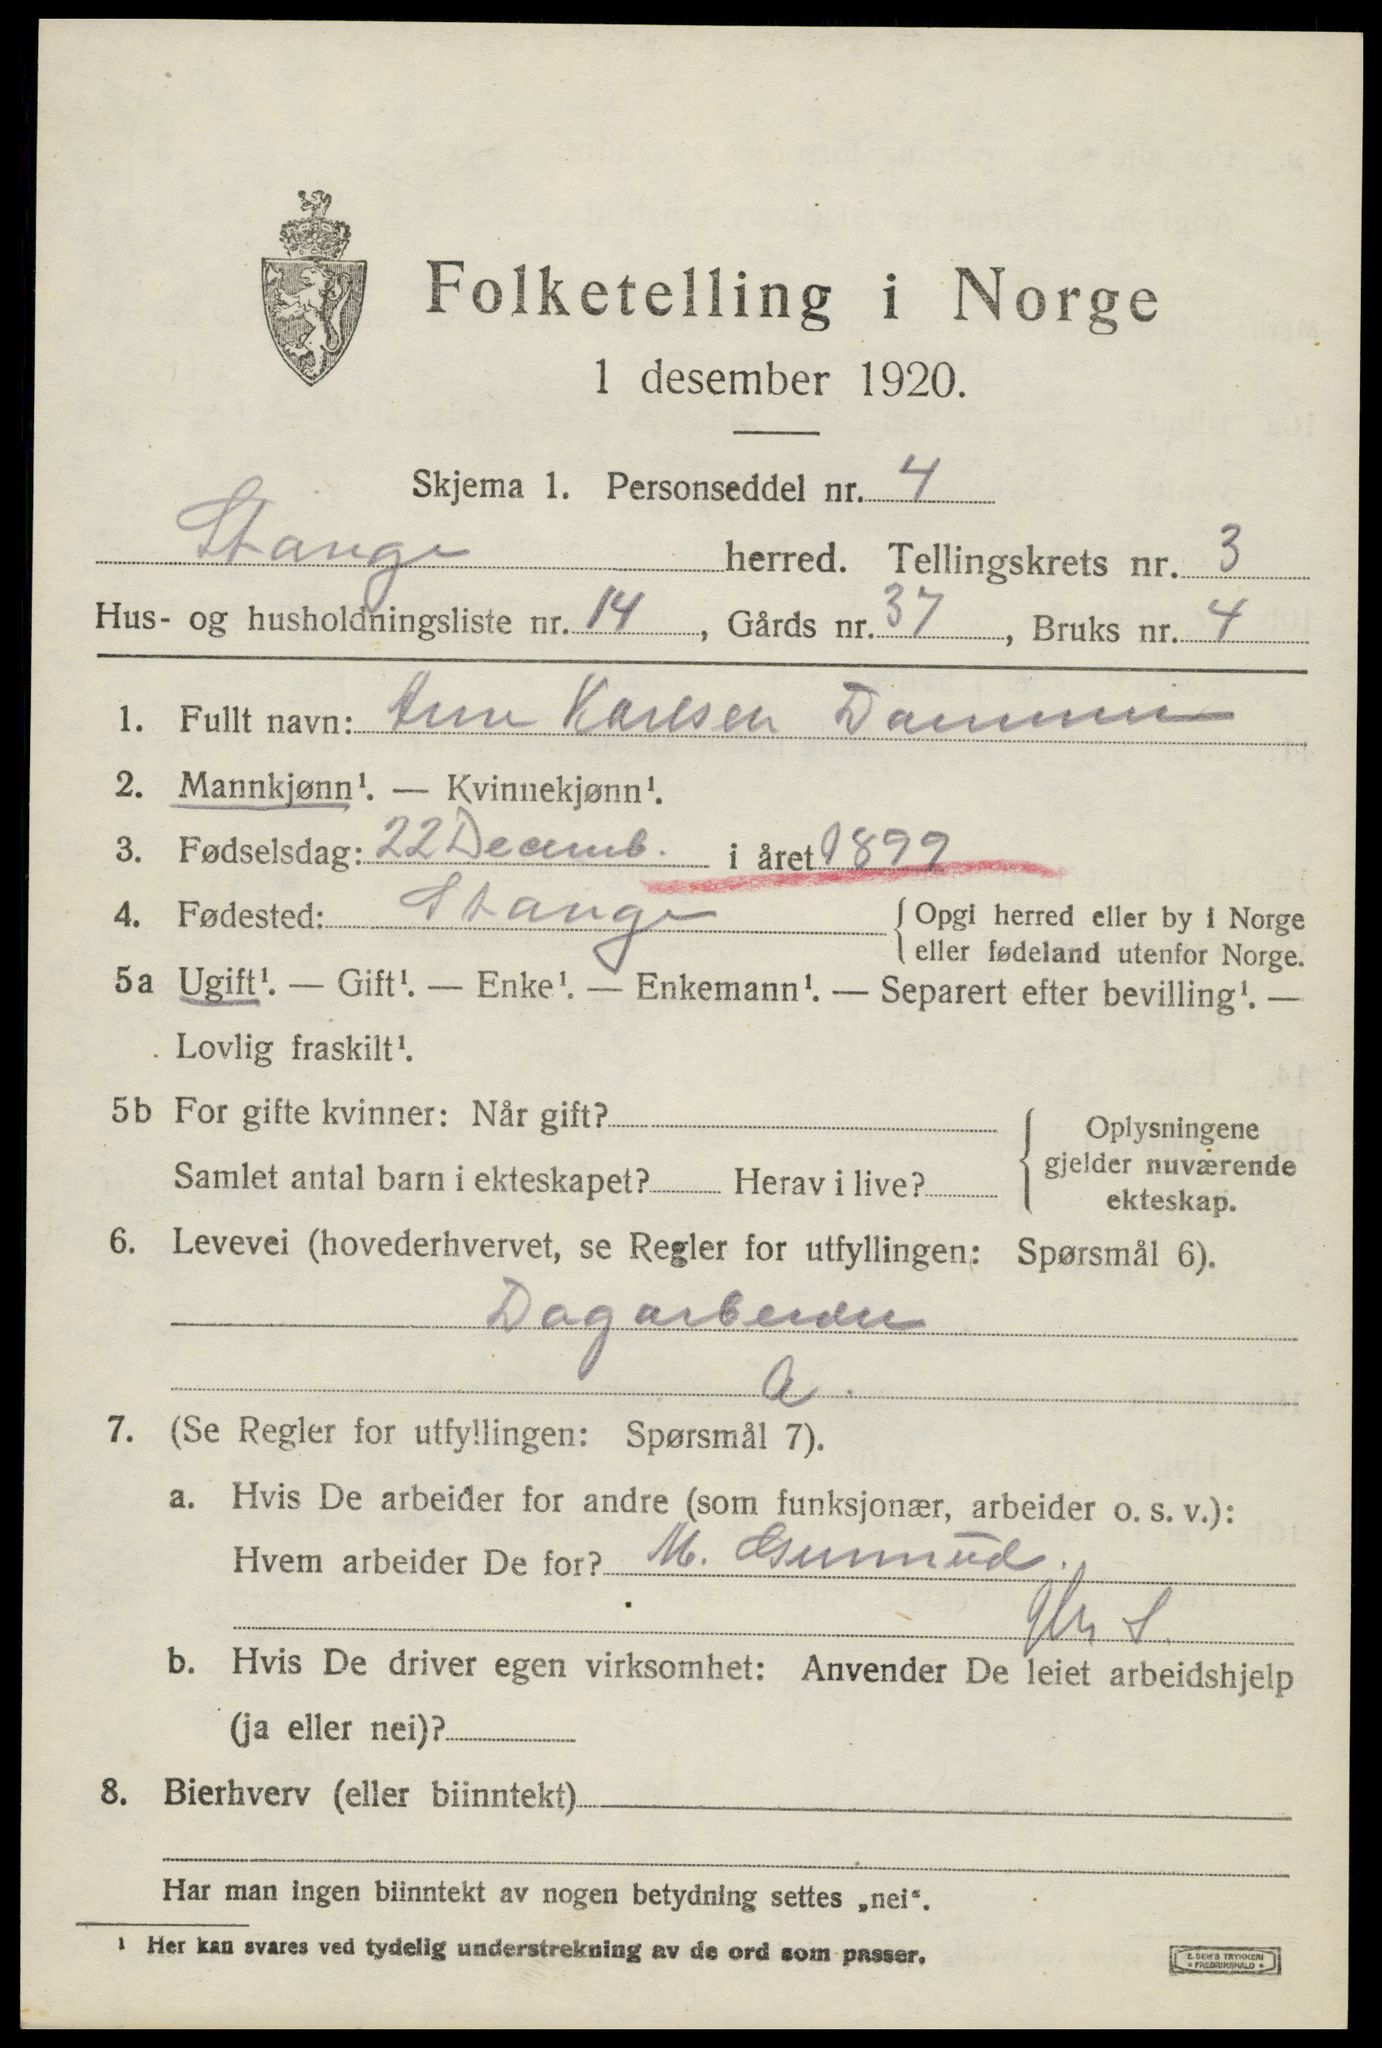 Folketelling i Norge
1 desember 1920.
Skjema 1. Personseddel nr. 4
Stange herred. Tellingskrets nr. 3
Hus- og husholdningsliste nr. 14, Gårds nr. 37, Bruks nr. 4
1. Fullt navn: Arne Karlsen
2. Mannkjønn¹. — Kvinnekjønn¹.
3. Fødselsdag: 22 Decemb. i året 1899
4. Fødested: Stange { Opgi herred eller by i Norge
eller fødeland utenfor Norge.
5a Ugift¹. — Gift¹. — Enke¹. — Enkemann¹. — Separert efter bevilling¹. —
Lovlig fraskilt¹.
5b For gifte kvinner: Når gift?
Samlet antal barn i ekteskapet? Herav i live?
{ Oplysningene
gjelder nuværende
ekteskap.
6. Levevei (hovederhvervet, se Regler for utfyllingen: Spørsmål 6).
Dagarbeider
a.
7. (Se Regler for utfyllingen: Spørsmål 7).
a. Hvis De arbeider for andre (som funksjonær, arbeider o. s. v.):
Hvem arbeider De for? M.
b. Hvis De driver egen virksomhet: Anvender De leiet arbeidshjelp
(ja eller nei)?
8. Bierhverv (eller biinntekt)
Har man ingen biinntekt av nogen betydning settes „nei“.
¹ Her kan svares ved tydelig understrekning av de ord som passer.
E. SEM'S TRYKKERI
• FREDRIKSHALD •